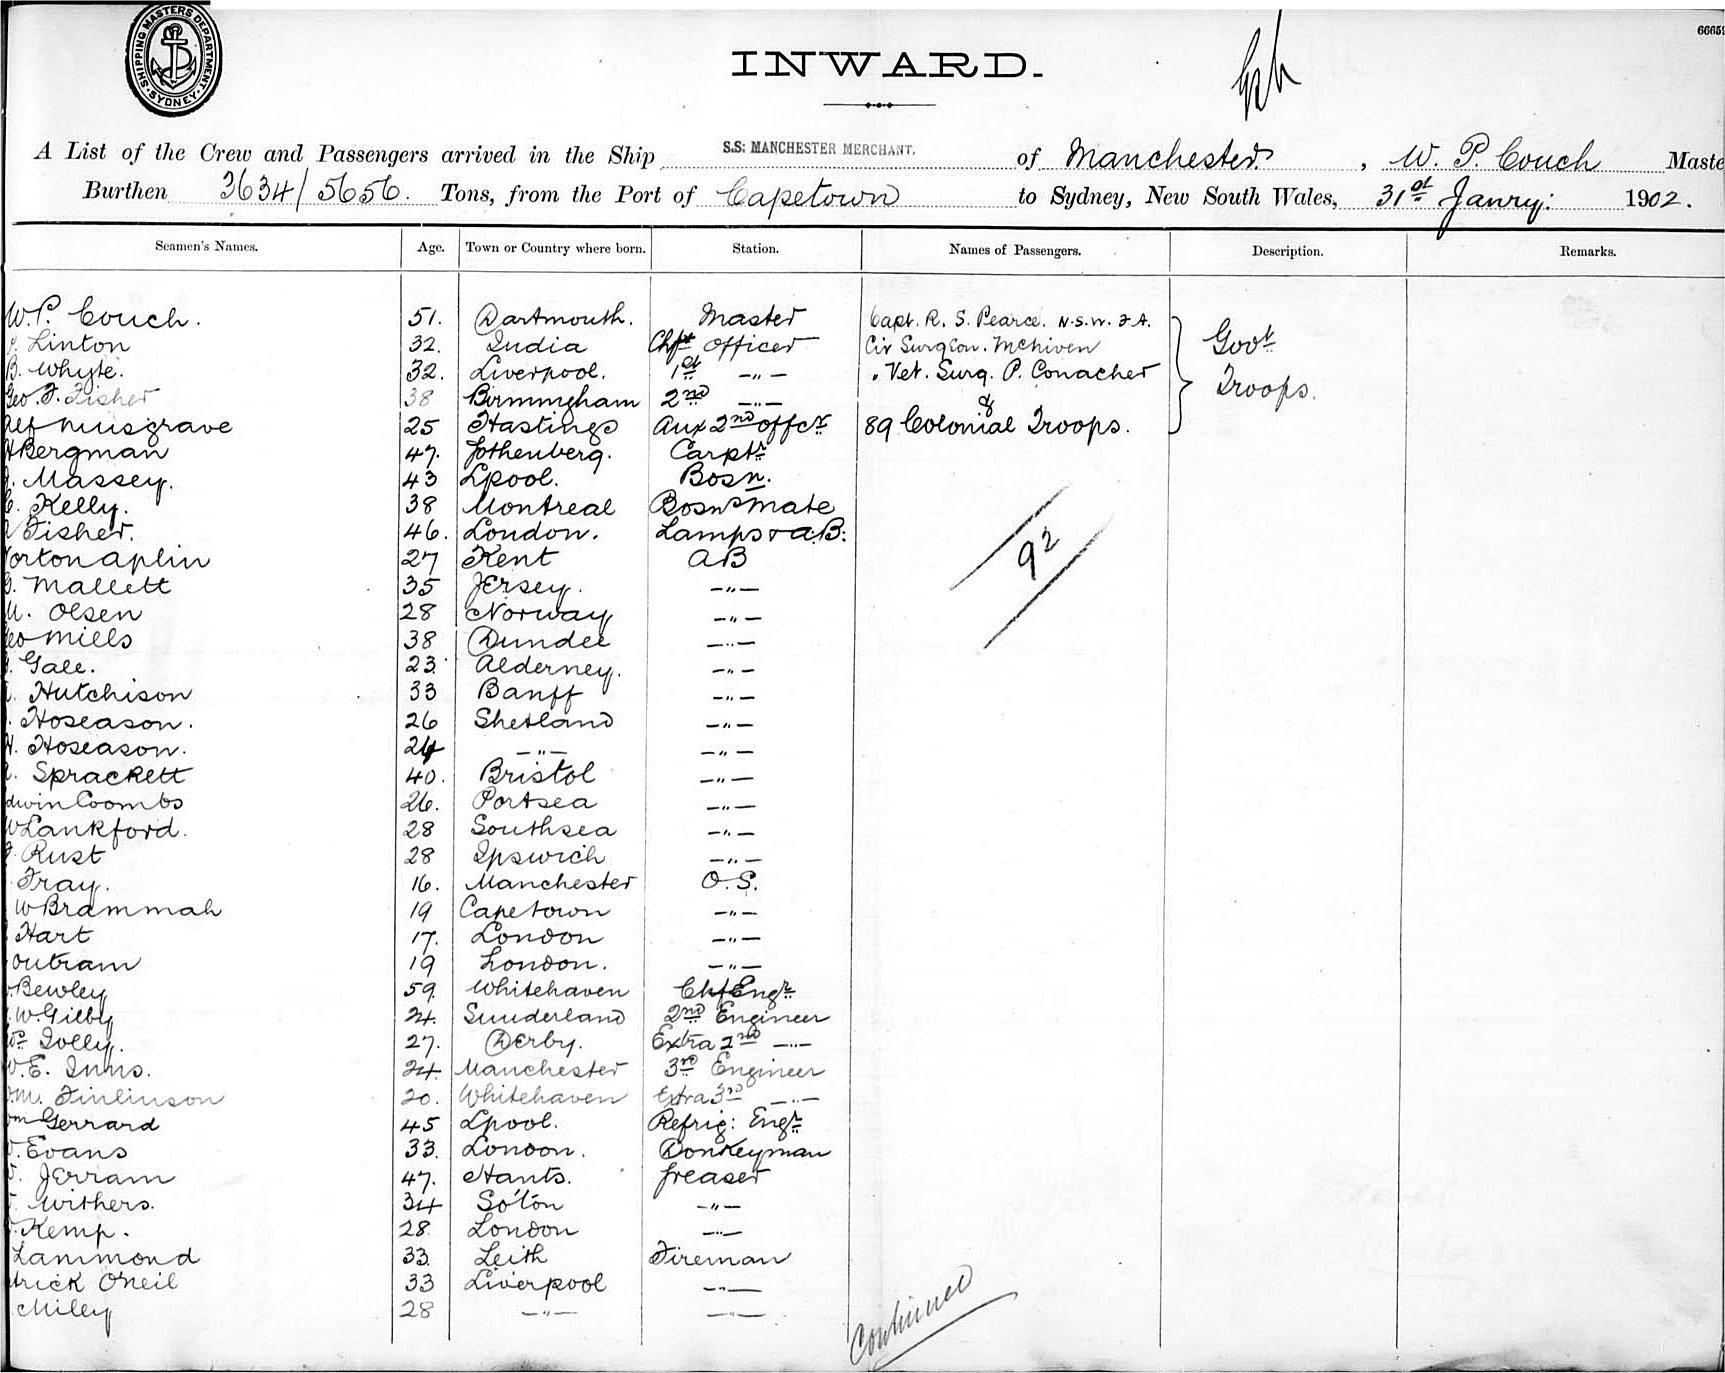 SHIPPING MASTERS DEPARTMENT. SYDNEY.
6665
INWARD.
A List of the Crew and Passengers arrived in the Ship S.S: MANCHESTER MERCHANT. of Manchester, W. P. Couch Maste
Burthen 3634/5656. Tons, from the Port of Capetown to Sydney, New South Wales, 31st Janry: 1902.
Seamen's Names. Age. Town or Country where born. Station. Names of Passengers. Description. Remarks.
W.P. Couch. 51. Dartmouth. Master Capt. R. S. Pearce. N.S.W. F.A.
Linton 32. India Chf Officer Civ Surgeon. McNiven Govt
B. Whyte. 32. Liverpool. 1st -"- Vet. Surg. P. Conacher Troops.
Geo. F. Fisher 38 Birmingham 2nd -"- &
Alf Musgrave 25 Hastings Aux 2nd offcr 89 Colonial Troops.
Bergman 47. Gothenberg. Carptr
Massey. 43 Lpool. Bosn.
C. Kelly. 38 Montreal Bosns Mate
Fisher. 46. London. Lamps & A.B:
orton Aplin 27 Kent AB 92
G. Mallett 35 Jersey. -"-
M. Olsen 28 Norway -"-
eo Mills 38 Dundee -"-
Gale. 23 Alderney. -"-
Hutchison 33 Banff -"-
Hoseason. 26 Shetland -"-
H. Hoseason. 24 -"- -"-
Sprackett 40. Bristol -"-
dwin Coombs 26. Portsea -"-
W Lankford. 28 Southsea -"-
Rust 28 Ipswich -"-
Fray. 16. Manchester O.S.
W Brammah 19 Capetown -"-
Hart 17. London -"-
Outram 19 London. -"-
Bewley 59. Whitehaven Chf Engr
W. Gilby 24. Sunderland 2nd Engineer
Jolly. 27. Derby. Extra 2nd -"-
W.E. Inns. 24. Manchester 3rd Engineer
M. Finlinson 20. Whitehaven Extra 3rd -"-
Gerrard 45 Lpool. Refrig: Engr
Evans 33. London. Donkeyman
Jerram 47. Hants. Greaser
Withers. 34 So'ton -"-
Kemp. 28. London -"-
Lammond 33. Leith Fireman
trick O'Neil 33 Liverpool -"-
Miley 28 -"- -"-
Continued